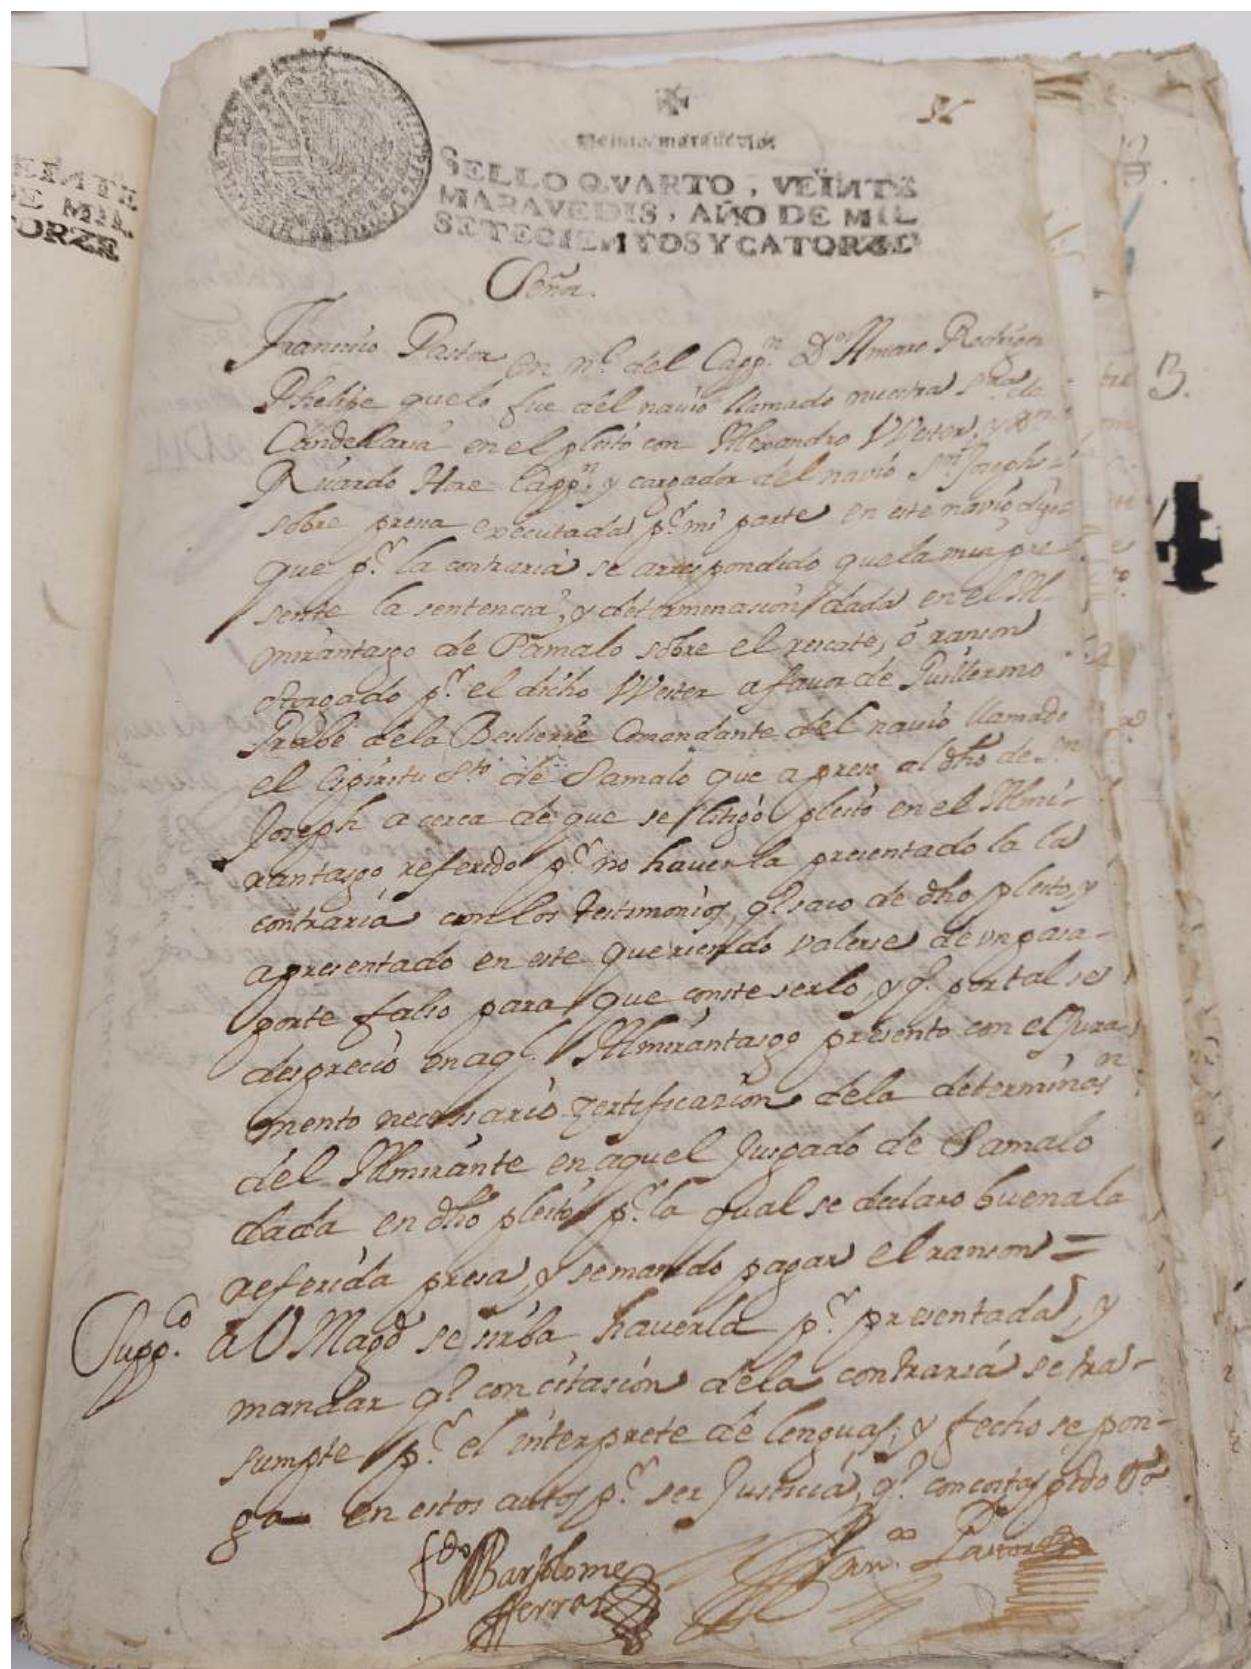 56
Veinte maravedis
SELLO QVARTO, VEINTE
MARAVEDIS, AÑO DE MIL
SETECIENTOS Y CATORZE
EINTE
E MIL
ORZE
Señor.
Francisco Pastor en ne. del Cappn. Dn Amaro Rodrigez
Phelipe quelo fue del navio llamado nuestra Sra. dela
Candellaria en el pleito con Alexandro VVester, y
Ricardo Hore Cappn. y cargador del navio Sn Joseph
sobre presa executada pr. mi parte en este navio, digo
que pr. la contraria se a respondido que la mia pre-
sente la sentencia, y determinasion dada en el Al-
mirantasgo de Samalo sobre el rescate, ó ranson
otorgado pr. el dicho VVester a favor de Guillermo
dela Comandante del navio llamado
el Espiritu Sto. de Samalo que apreso al dho de Sn
Joseph a cerca de que se litigó pleito en el Almi-
rantasgo referido pr. no haverla presentado la la
contraria con los testimonios, q. saco de dho pleito, y
apresentado en este queriendo valerse de vn pasa-
porte falso para que conste serlo, y q. por tal se
despreció en aql. Almirantasgo presento con el Jura-
mento necessario zertificazion dela determinasn
del Almirante en aquel Jusgado de Samalo
dada en dho pleito pr. la qual se declaro buena la
referida presa, y semando pagar el ranson =
Suppco. a V Magd se sirba haverla pr. presentada, y
mandar q. con citasion dela contraria se tra-
sumpte pr. el interprete de lenguas, y fecho se pon-
ga en estos autos pr. ser Justicia, q. con costas pido
Bartolome
Franco. Pastor
B.
4